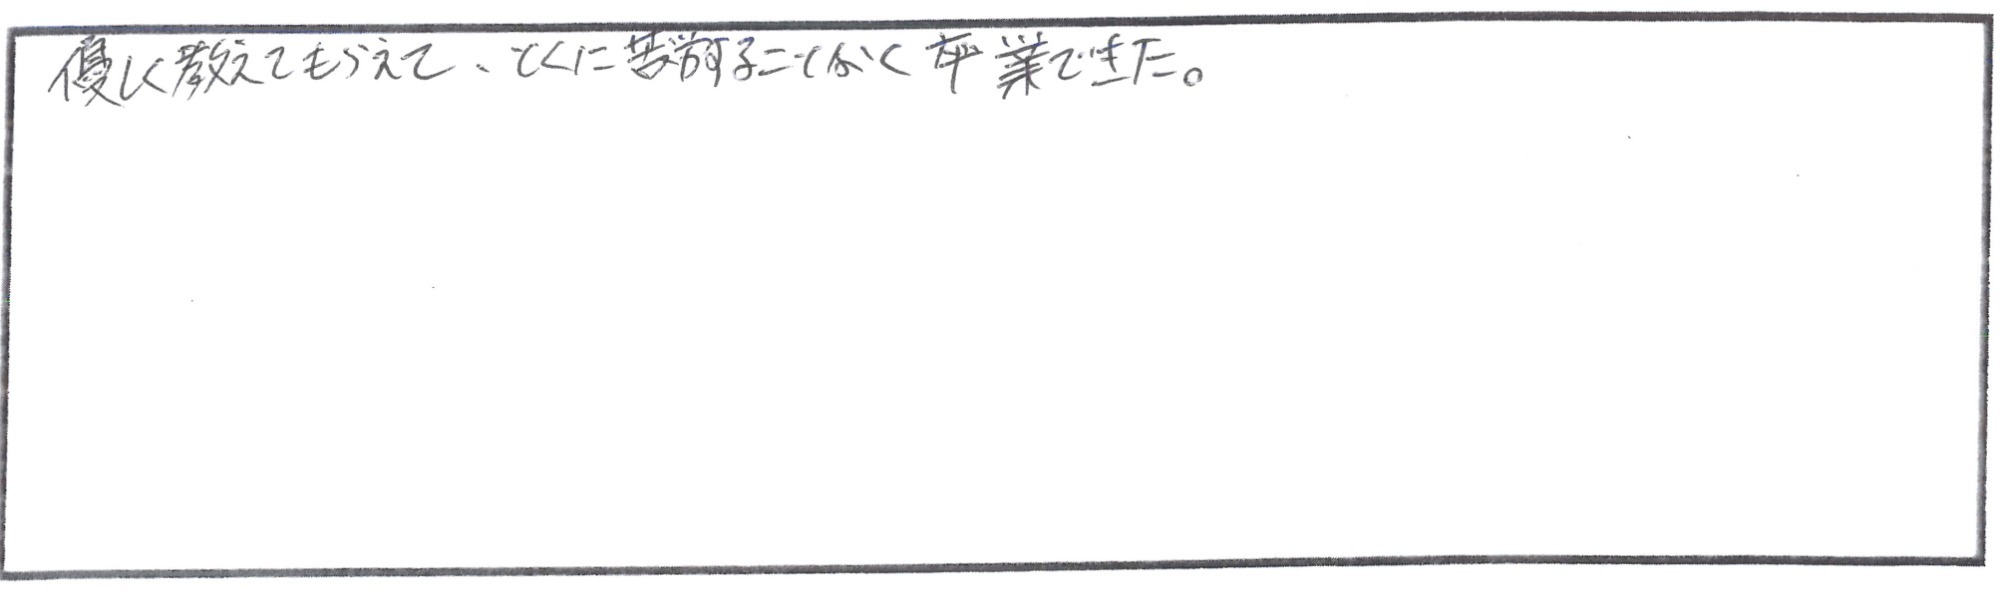 優しく教えてもらえて、とくに苦労することなく卒業できた。